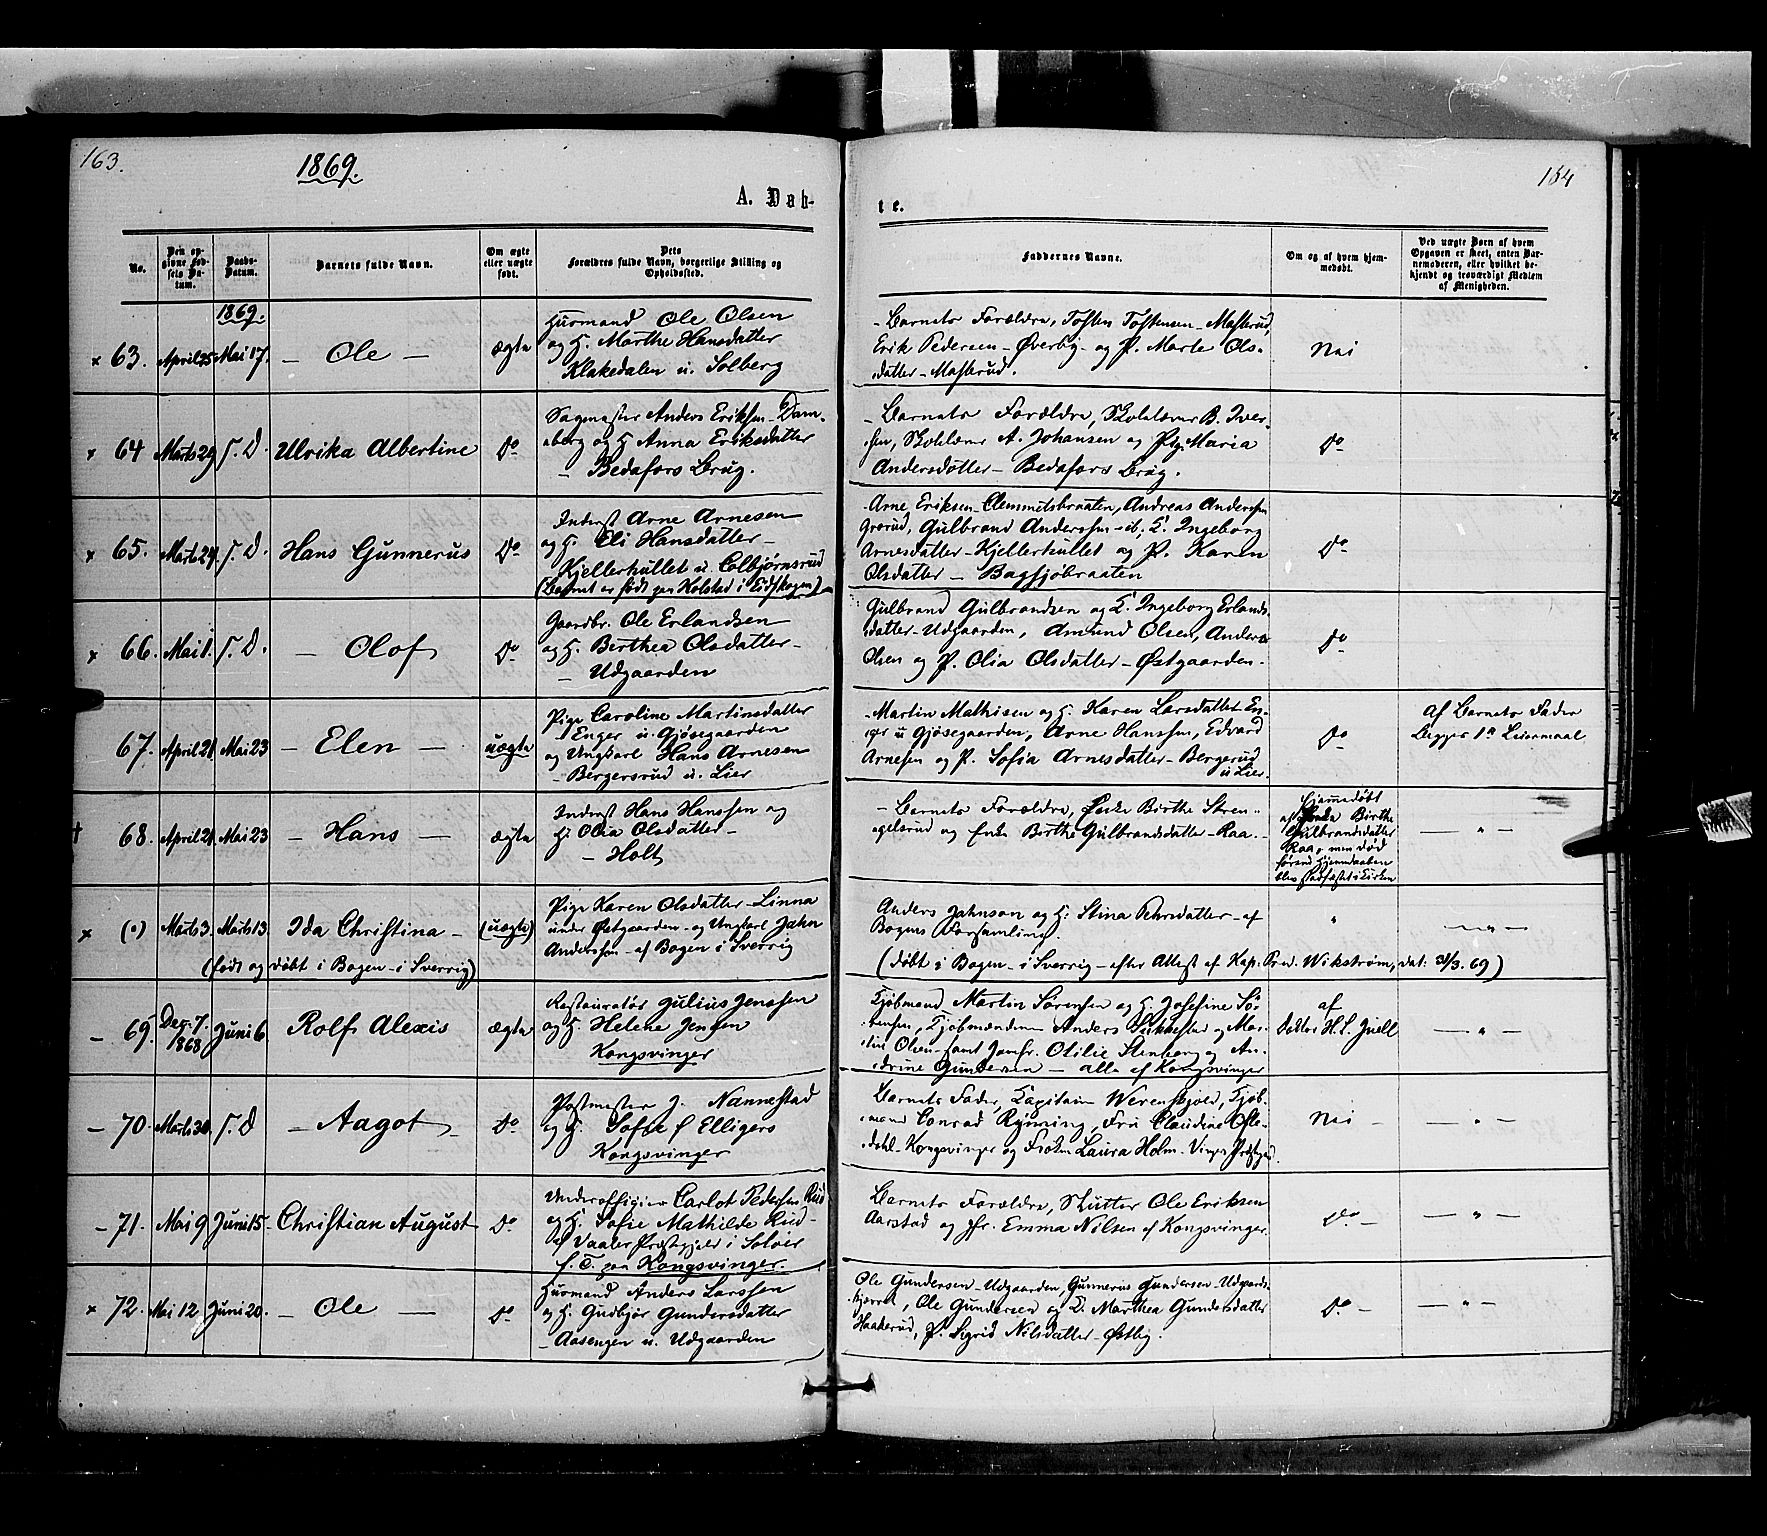 163.
1869.
A. Døb-
No.
Den op-
givne Fød-
sels Da-
tum.
Daabs-
Datum.
Barnets fulde Navn.
Om ægte
eller uægte
født.
Dets
Forældres fulde Navn, borgerlige Stilling og
Opholdssted.
1869.
× 63. April 25 Mai 17. — Ole — ægte
Husmand Ole Olsen
og H. Marthe Hansdatter
Klakedalen u. Solberg
× 64 Marts 29 S. D. Ulrika Albertine Do
Sagmester Anders Eriksen Dam-
berg og H Anna Eriksdatter
— Bedafors Brug.
× 65. Marts 24. S. D. Hans Gunnerus Do
Inderst Arne Arnesen
og H. Eli Hansdatter —
Kjellerhullet u. Colbjørnsrud
(Barnet er født paa Holstad i Eidskogen)
× 66. Mai 1. S. D. — Olof Do
Gaardbr. Ole Erlandsen
og H. Berthea Olsdatter —
— Udgaarden
67. April 21 Mai 23 — Elen — uægte
Pige Caroline Martinsdatter
Enger u. Gjøsegaarden
og Ungkarl Hans Arnesen
— Bergersrud u. Lier
† 68. April 21. Mai 23 — Hans — ægte
Inderst Hans Hanssen og
H: Olia Olsdatter —
— Holt
× (") Marts 3. Marts 13 Ida Christina — (uægte)
Pige Karen Olsdatter Linna
under Østgaarden — og Ungkarl Jahn
Anderssen — af Bogen i Sverrig
(født og døbt i Bogen — i Sverrig)
— 69. Dec. 7. 1868 Juni 6 Rolf Alexis ægte
Restauratør Julius Jenssen
og H. Helene Jensen
Kongsvinger
— 70. Marts 30. S. D — Aagot — Do
Postmester J. Nannestad
og H. Sofie f Elligers
Kongsvinger
— 71. Mai 9 Juni 15. Christian August Do
Underofficier Carlot Pedersen Rud
og H. Sofie Mathilde Rud —
af Vaaler Præstegjeld i Soløer
f. T. paa Kongsvinger.
× 72. Mai 12 Juni 20. — Ole — Do
Husmand Anders Larssen
og H. Gudbjør Gundersdatter
— Aasengen u. Udgaarden
164
te.
Faddernes Navne.
Om og af hvem hjem-
medøbt.
Ved uægte Børn af hvem
Opgaven er skeet, enten Bar-
nemoderen, eller hvilket be-
kjendt og troværdigt Medlem
af Menigheden.
— Barnets Forældre, Tosten Tostensen — Masterud,
Erik Pedersen — Øverby — og P. Marte Ols-
datter — Masterud. Nei
— Barnets Forældre, Skolelærer B. Iver-
sen, Skolelærer A. Johansen og Pige Maria
Andersdatter — Bedafors Brug. Do
Arne Eriksen — Clemmetsbraaten, Andreas Anderssen
Grorud, Gulbrand Anderssen — ib; E. Ingeborg
Arnesdatter — Kjellerhullet og P. Karen
Olsdatter — Bagsjøbraaten Do
Gulbrand Gulbrandsen og E. Ingeborg Erlands-
datter — Udgaarden, Amund Olsen, Anders
Olsen og P. Olia Olsdatter — Østgaarden — Do
— Martin Mathisen og H. Karen Larsdatter En-
ger u Gjøsegaarden, Arne Hanssen, Edvard
Arnesen og P. Sofia Arnesdatter — Bergerud
u Lier. Do
af Barnets Fader
Begges 1ste Leiermaal
— Barnets Forældre, Enke Birthe Stren-
gelsrud og Enke Birthe Gulbrandsdatter — Raa. —
Hjemmedøbt
af Enke Birthe
Gulbrandsdatter
Raa, men død
førend Hjemdaaben
blev stadfæstet i Kirken
— " —
Anders Jahnson og H: Stina Pehrsdatter — af
Bogens Forsamling. " — " —
(døbt i Bogen — i Sverrig — efter Attest af Kap: Præd. Wikstrøm, dat: 31/3. 69)
Kjøbmand Martin Sørensen og H. Josefine Sø-
rensen, Kjøbmændene Anders Sikkestad og Mar-
tin Olsen — samt Jomfr. Otilie Stenberg og An-
drine Gundersen — alle af Kongsvinger
af
Doktor H. S. Juell — " —
Barnets Fader, Kapitain Werenskjold, Kjøb-
mand Conrad Rynning, Fru Claudine Ofte-
dahl — Kongsvinger og Frøken Laura Holm — Vinger Præstegd. Nei — " —
Barnets Forældre, Skutter Ole Eriksen
Aarstad og Jfr. Emma Nilsen af Kongsvinger. Do — — " —
Ole Gundersen — Udgaarden, Gunnerius Gundersen — Udgaards-
kjernet, Ole Gundersen og E. Marthea Gundersdatter
Haakerud, P. Sigrid Nilsdatter — Østby. Do — — " —